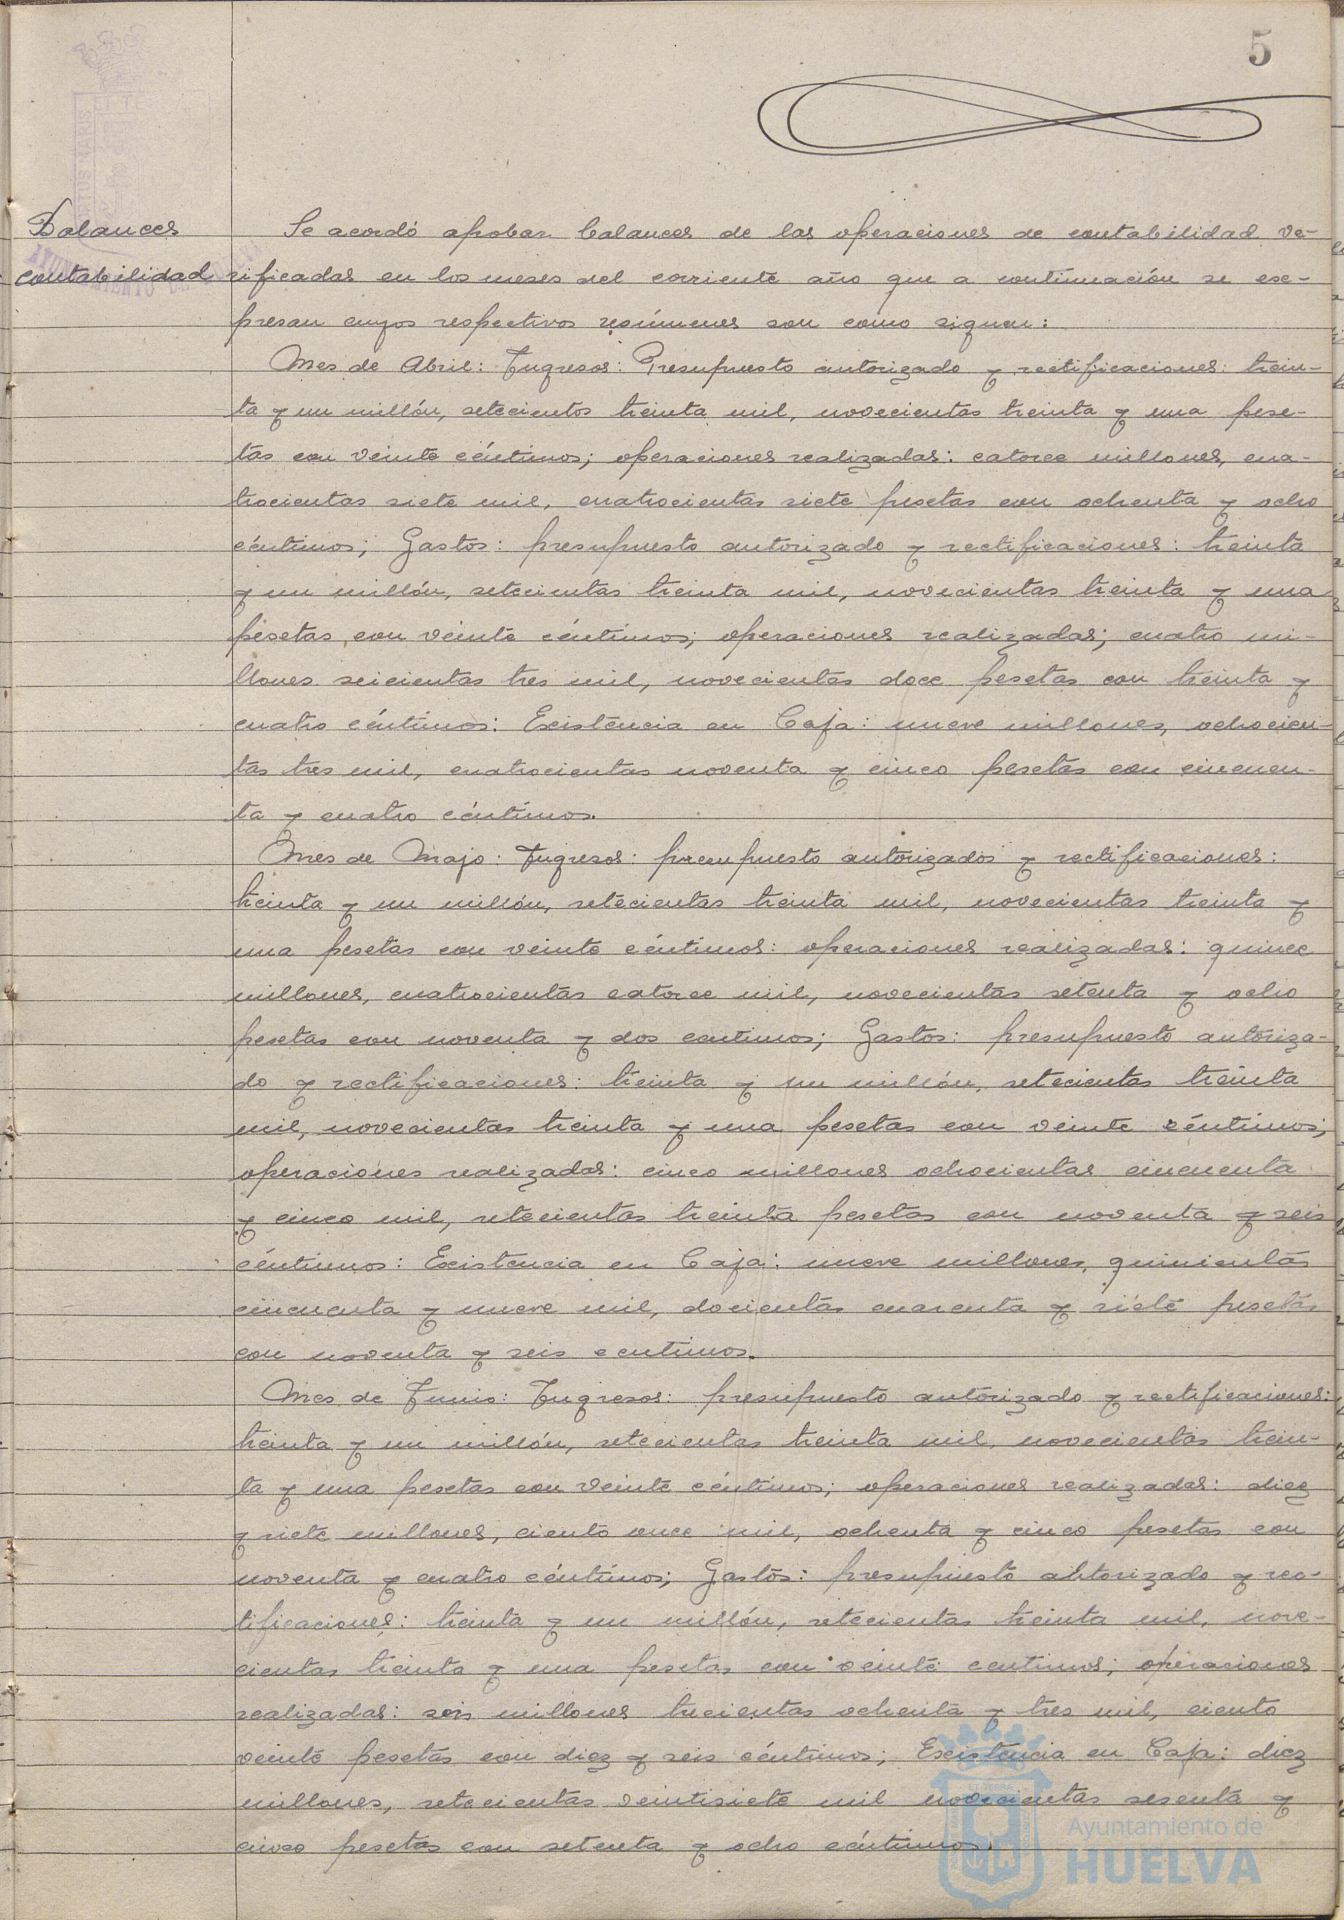 5
Balances
contabilidad
Se acordó aprobar balances de las operaciones de contabilidad ve-
rificadas en los meses del corriente año que a continuación se exe-
presan cuyos respectivos resúmenes son como siguen:
Mes de Abril: Ingresos: Presupuesto autorizado y rectificaciones: trein-
ta y un millón, setecientos treinta mil, novecientas treinta y una pese-
tas con veinte céntimos; operaciones realizadas: catorce millones, cua-
trocientas siete mil, cuatrocientas siete pesetas con ochenta y ocho
céntimos; Gastos: presupuesto autorizado y rectificaciones: treinta
y un millón, setecientas treinta mil, novecientas treinta y una
pesetas con veinte céntimos; operaciones realizadas; cuatro mi-
llones seicientas tres mil, novecientas doce pesetas con treinta y
cuatro céntimos: Existencia en Caja: nueve millones, ochocien-
tas tres mil, cuatrocientas noventa y cinco pesetas con cincuen-
ta y cuatro céntimos.
Mes de Mayo: Ingresos: presupuesto autorizados y rectificaciones:
treinta y un millón, setecientas treinta mil, novecientas treinta y
una pesetas con veinte céntimos: operaciones realizadas: quince
millones, cuatrocientas catorce mil, novecientas setenta y ocho
pesetas con noventa y dos centimos; Gastos: presupuesto autoriza-
do y rectificaciones: treinta y un millón, setecientas treinta
mil, novecientas treinta y una pesetas con veinte céntimos;
operaciones realizadas: cinco millones ochocientas cincuenta
y cinco mil, setecientas treinta pesetas con noventa y seis
céntimos: Existencia en Caja: nueve millones, quinientas
cincuenta y nueve mil, docientas cuarenta y siete pesetas
con noventa y seis centimos.
Mes de Junio: Ingresos: presupuesto autorizado y rectificaciones:
treinta y un millón, setecientas treinta mil, novecientas trein-
ta y una pesetas con veinte céntimos; operaciones realizadas: diez
y siete millones, ciento once mil, ochenta y cinco pesetas con
noventa y cuatro céntimos; Gastos: presupuesto autorizado y rec-
tificaciones: treinta y un millón, setecientas treinta mil, nove-
cientas treinta y una pesetas con veinte centimos; operaciones
realizadas: seis millones trecientas ochenta y tres mil, ciento
veinte pesetas con diez y seis céntimos; Existencia en Caja: diez
millones, setecientas veintisiete mil novecientas sesenta y
cinco pesetas con setenta y ocho céntimos.
Ayuntamiento de
HUELVA